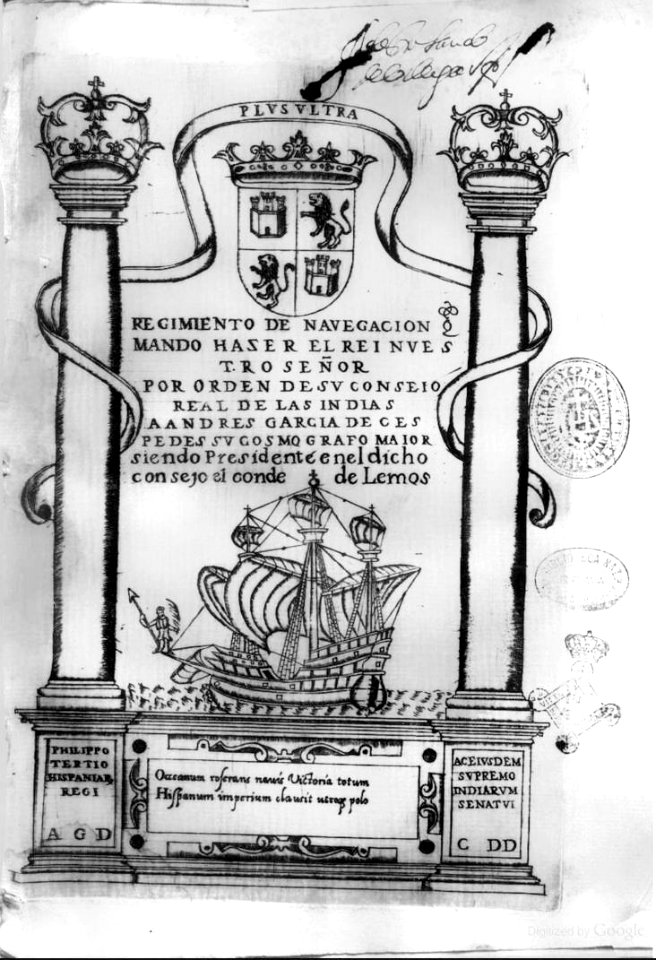 PLVS VLTRA
REGIMIENTO DE NAVEGACION
MANDO HASER EL REI NVES
T.RO SEÑOR
POR ORDEN DE SV CONSEIO
REAL DE LAS INDIAS
A ANDRES GARCIA DE CES
PEDES SV COSMOGRAFO MAIOR
siendo Presidente enel dicho
consejo el conde de Lemos
PHILIPPO
TERTIO
HISPANIAR
REGI
A G D
Occeanum reserans navis Victoria totum
Hispanum imperium clausit utroq polo
AC EIVSDEM
SVPREMO
INDIARVM
SENATVI
C DD
Digitized by Google